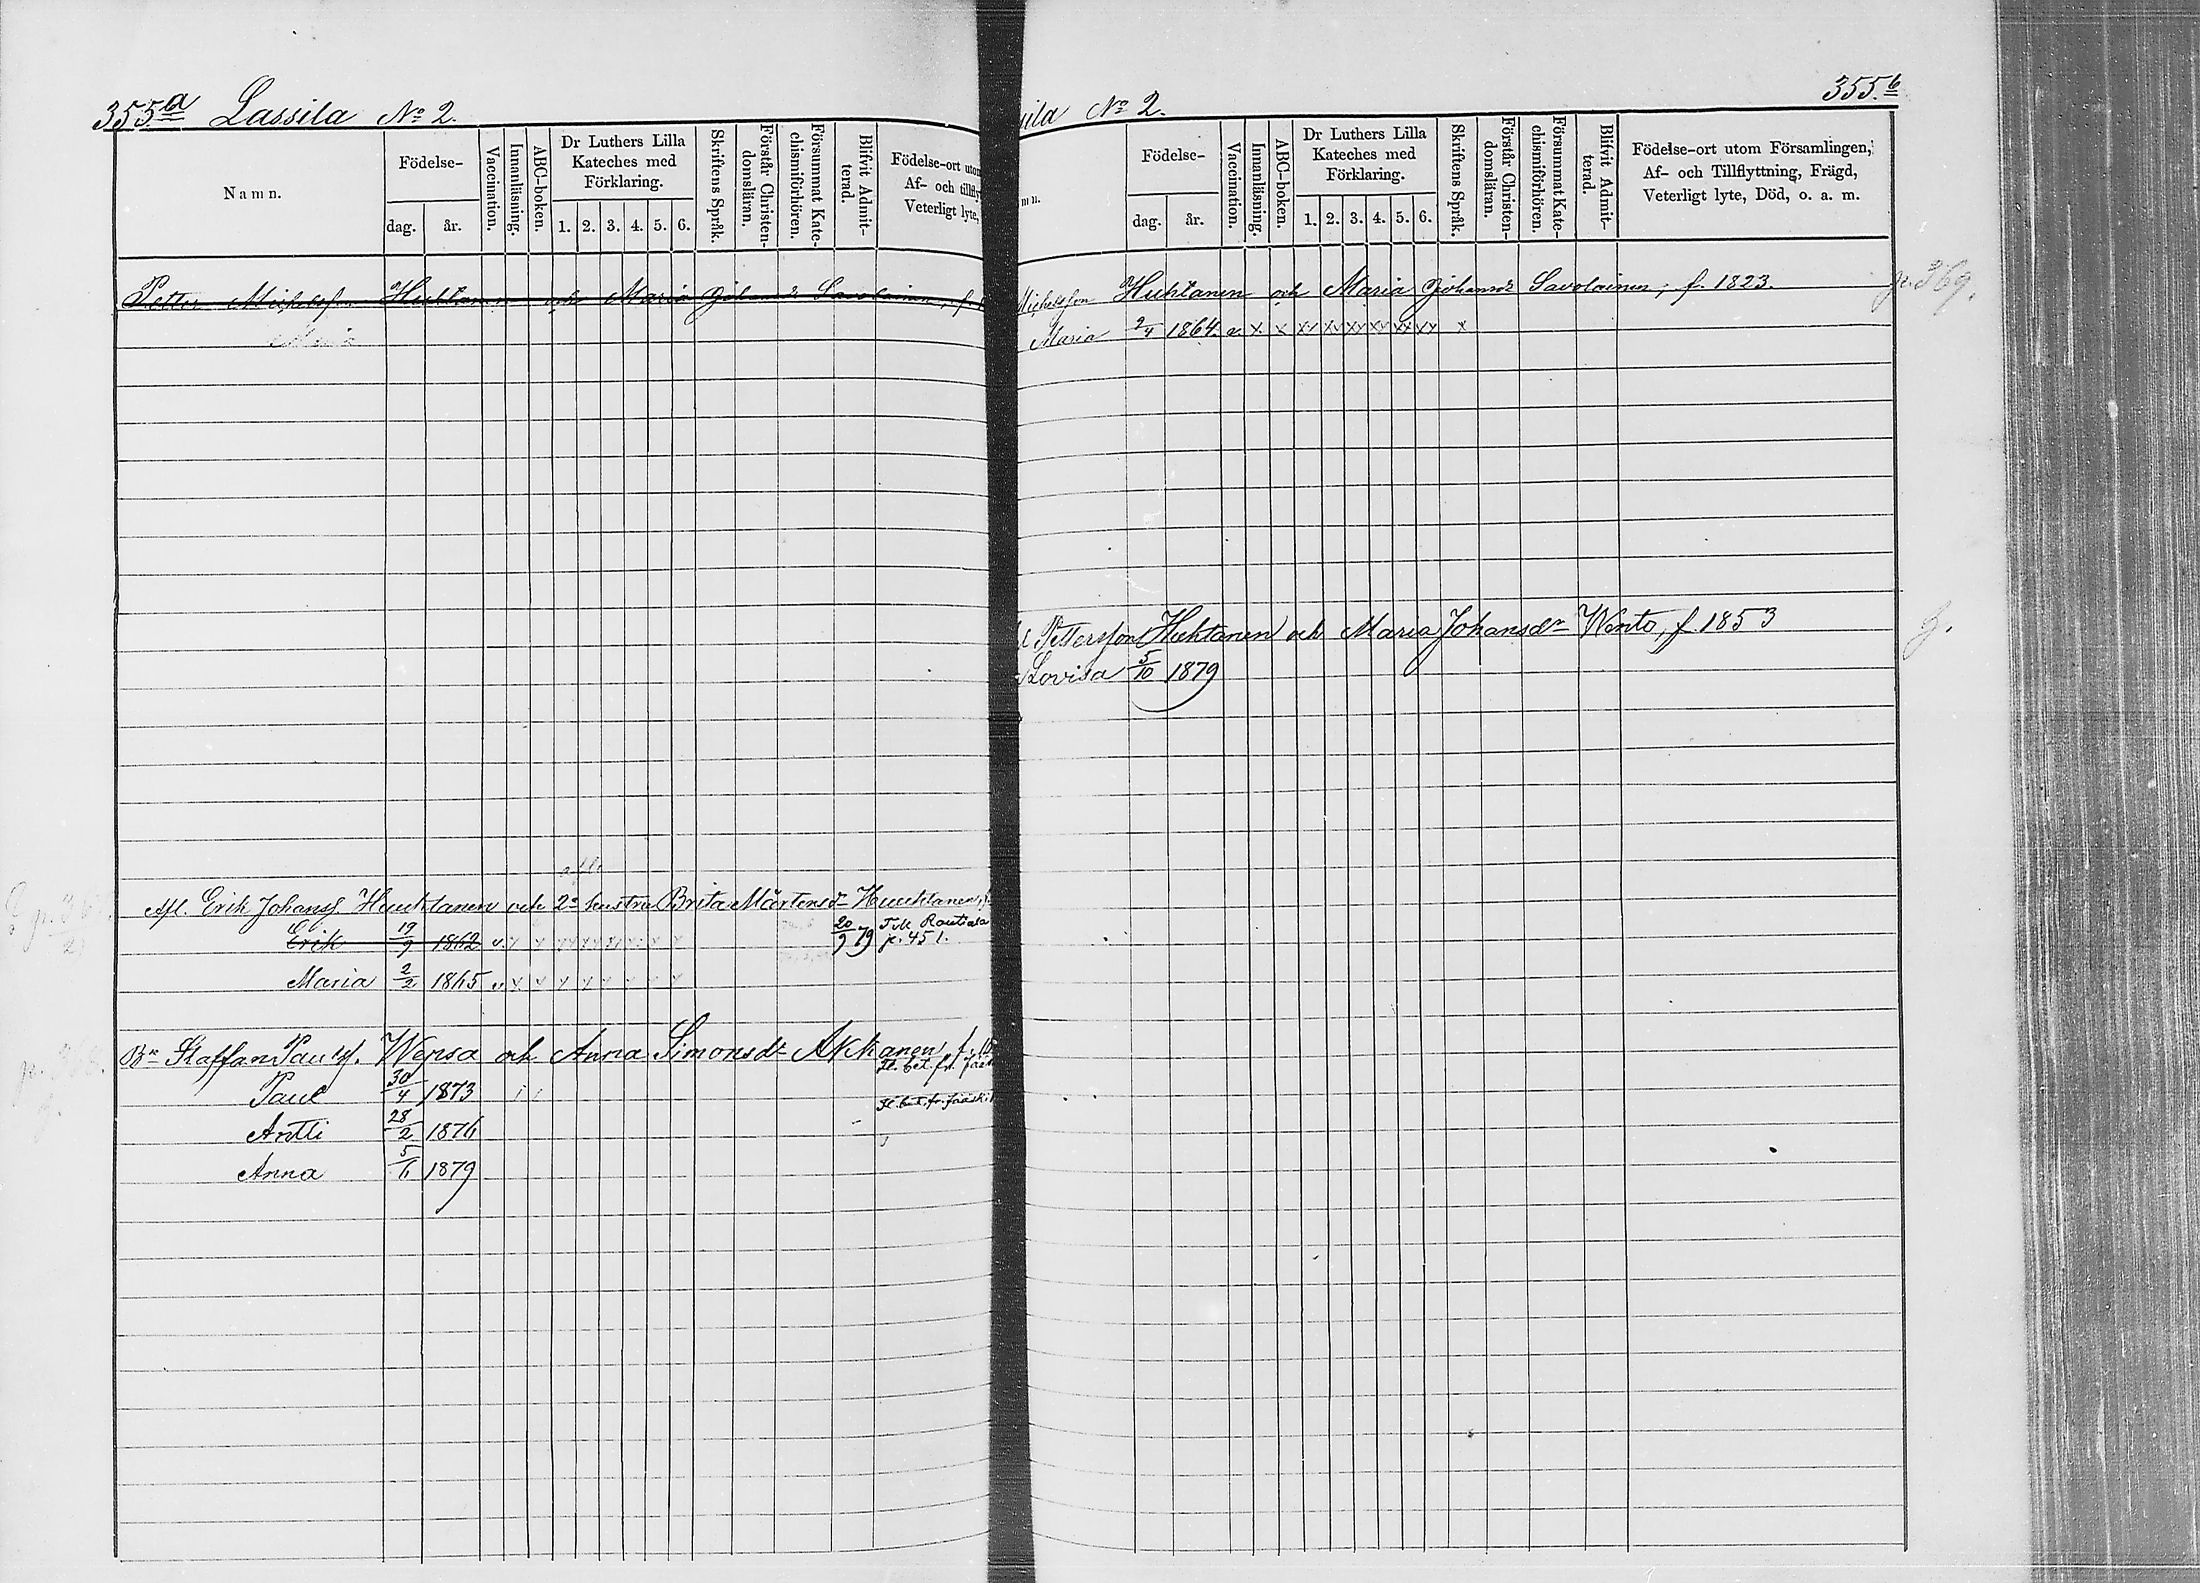 355a Lassila No 2.
Namn.
Födelse-
dag. år.
Vaccination.
Innanläsning.
ABC-boken.
Dr Luthers Lilla
Kateches med
Förklaring.
1. 2. 3. 4. 5. 6.
Skriftens Språk.
Förstår Christen-
domsläran.
Försummat Kate-
chismiförhören.
Blifvit Admit-
terad.
Födelse-ort utom
Af- och tillfly
Veterligt lyte,
Petter Michelsson Huhtanen och Maria Johansdr Savolainen, f.
Maria
afl. Erik Johanss. Huuhtanen och 2a hustru Brita Mårtensdr Huuhtanen,
Erik 19/9 1862 v. x x xx xx xx x x x 20/9 79 Till Rautiala
p. 451.
Maria 2/2 1865 v. x x x x x x x x
Bn Staffan Paulss. Wensa och Anna Simonsdr Akkanen f.
Fl. bet. fr. Jääsk
Paul 30/4 1873
Fl. bet. fr. Jääski
Antti 28/2 1876
Anna 5/6 1879
355.b
ila No 2.
mn.
Födelse-
dag. år.
Vaccination.
Innanläsning.
ABC-boken.
Dr Luthers Lilla
Kateches med
Förklaring.
1. 2. 3. 4. 5. 6.
Skriftens Språk.
Förstår Christen-
domsläran.
Försummat Kate-
chismiförhören.
Blifvit Admit-
terad.
Födelse-ort utom Församlingen,
Af- och Tillflyttning, Frägd,
Veterligt lyte, Död, o. a. m.
Michelsson Huhtanen och Maria Johansdr Savolainen, f. 1823. p. 369.
Maria 2/4 1864. v. x x xx xx xx xx xx xx x
l Pettersson Huhtanen och Maria Johansdr Wento, f. 1853
Lovisa 5/10 1879